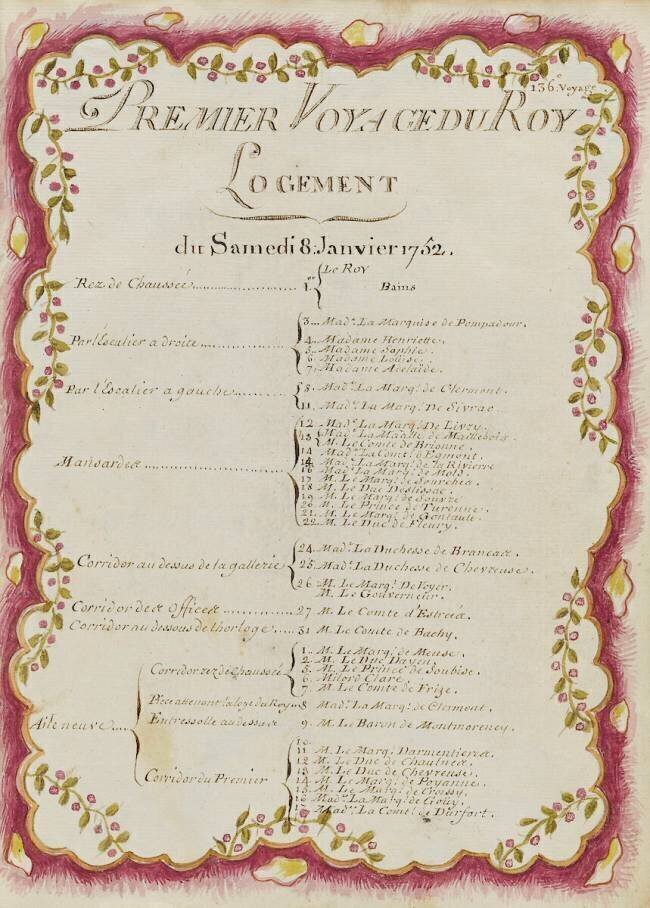 136.e Voyage
PREMIER VOYAGE DU ROY
LOGEMENT
du Samedi 8. Janvier 1752.
Rez de Chaussée 1.er Le Roy
Bains
Par l'Escalier a droite 3 Mad.e La Marquise de Pompadour.
4 Madame Henriette.
5 Madame Sophie.
6 Madame Louise.
7 Madame Adelaide.
Par l'Escalier a gauche 8. Mad.e La Marq.e de Clermont.
11. Mad.e La Marq. De Sivrac.
Mansardes 12. Mad.e La Marq. De Livry.
13 Mad.e La Maq.lle de Maillebois.
M. Le Comte de Brionne.
14 Mad.e La Comt.e d'Egmont.
Mad.e La Marq. de la Rivierre
16 Mad.e La Marq. de
17 M. Le Marq. de Sourches.
18 M. Le Duc Destissac.
19 M. Le Marq. de Souvré
20 M. Le Prince de Turenne.
21. M. Le Marq. de Gontault.
22 M. Le Duc de Fleury.
Corridor au dessus de la gallerie 24. Mad.e La Duchesse de Brancas.
25. Mad.e La Duchesse de Chevreuse.
26 M. Le Marq. De Voyer.
M. Le Gouverneur.
Corridor des offices 27 M. Le Comte d'Estrées.
Corridor au dessous de l'horloge 31 M. Le Comte de Bachy.
Aile neuve Corridor rez de Chaussée 1. M. Le Marq. de Meuse.
2. M. Le Duc Dayen.
5. M. Le Prince de Soubise.
6. Milord Clare.
7. M. Le Comte de Frize.
Piece attenant la loge du Roy 8 Mad.e La Marq. de Clermont.
Entressolle au dessus 9. M. Le Baron de Montmorency.
Corridor du Premier 10.
11. M. Le Marq. Darmentieres.
12 M. Le Duc de Chaulnes.
13 M. Le Duc de Chevreuse.
14 M. Le Marq. de Poyanne.
15. M. Le Marq. de Croissy.
16 Mad.e La Marq. de Gouy.
17 Mad.e La Comt.e de Durfort.